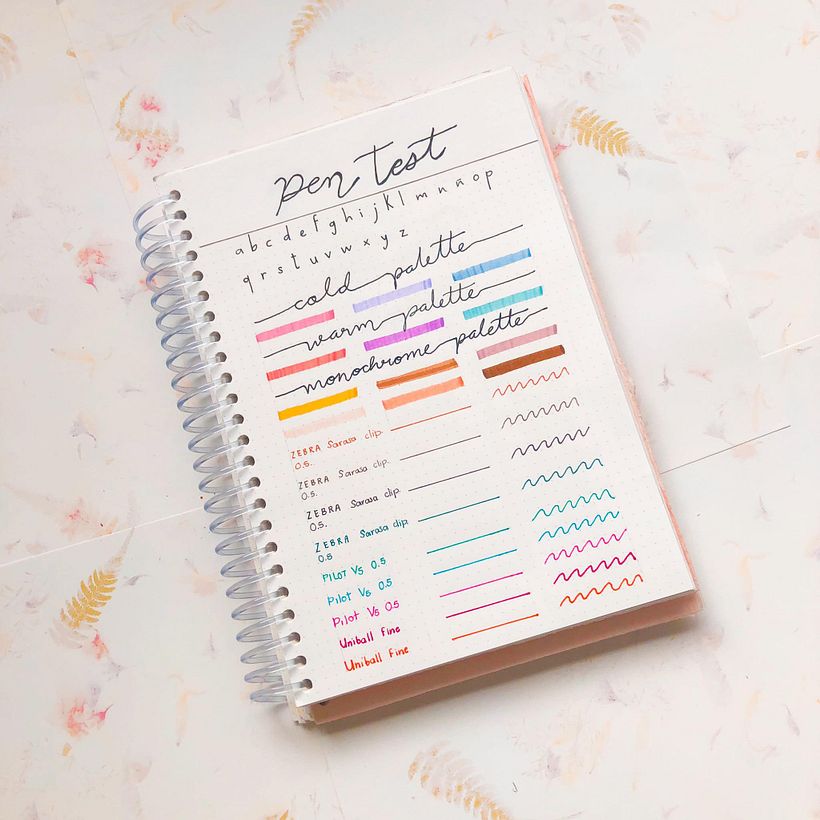 Pen Test
a b c d e f g h i j k l m n ñ o p
q r s t u v w x y z
cold palette
warm palette
monochrome palette
ZEBRA Sarasa clip.
0.5.
ZEBRA Sarasa clip.
0.5.
ZEBRA Sarasa clip.
0.5.
ZEBRA Sarasa clip
0.5
PILOT V5 0.5
Pilot V5 0.5
Pilot V5 0.5
Uniball fine
Uniball fine